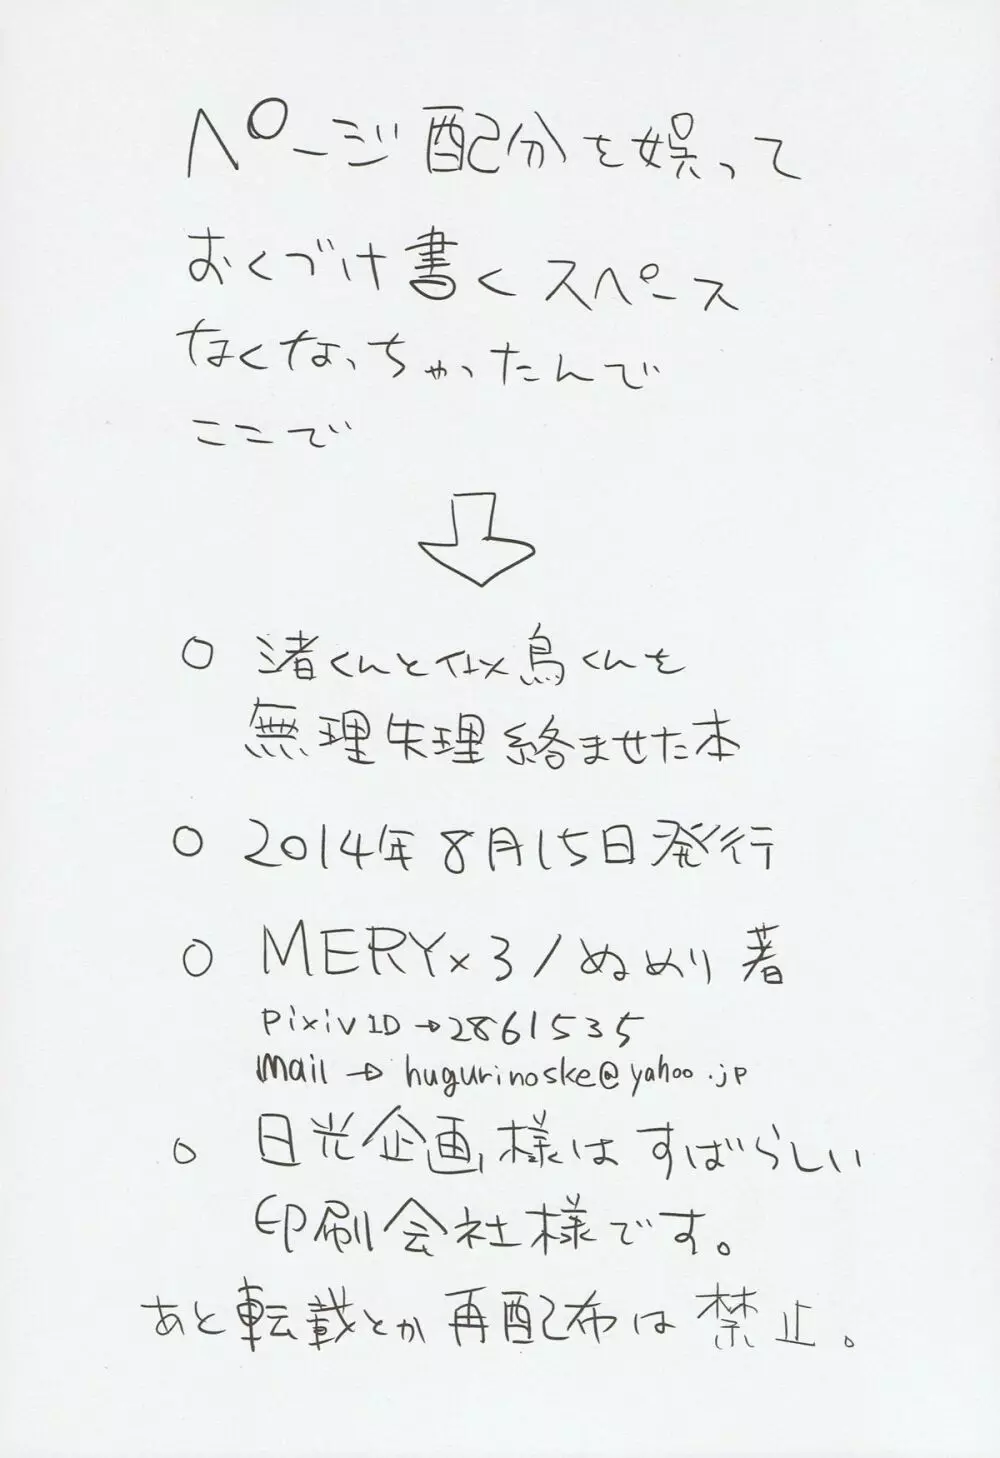 ページ配分を娯って
おくづけ書くスペース
なくなっちゃったんで
ここで
○ 渚くんと似鳥くんを
無理失理絡ませた本
○ 2014年8月15日発行
○ MERY×3/ぬめり 著
pixiv ID→2861535
mail→hugurinoske@yahoo.jp
○ 日光企画様はすばらしい
印刷会社様です。
あと転載とか再配布は禁止。